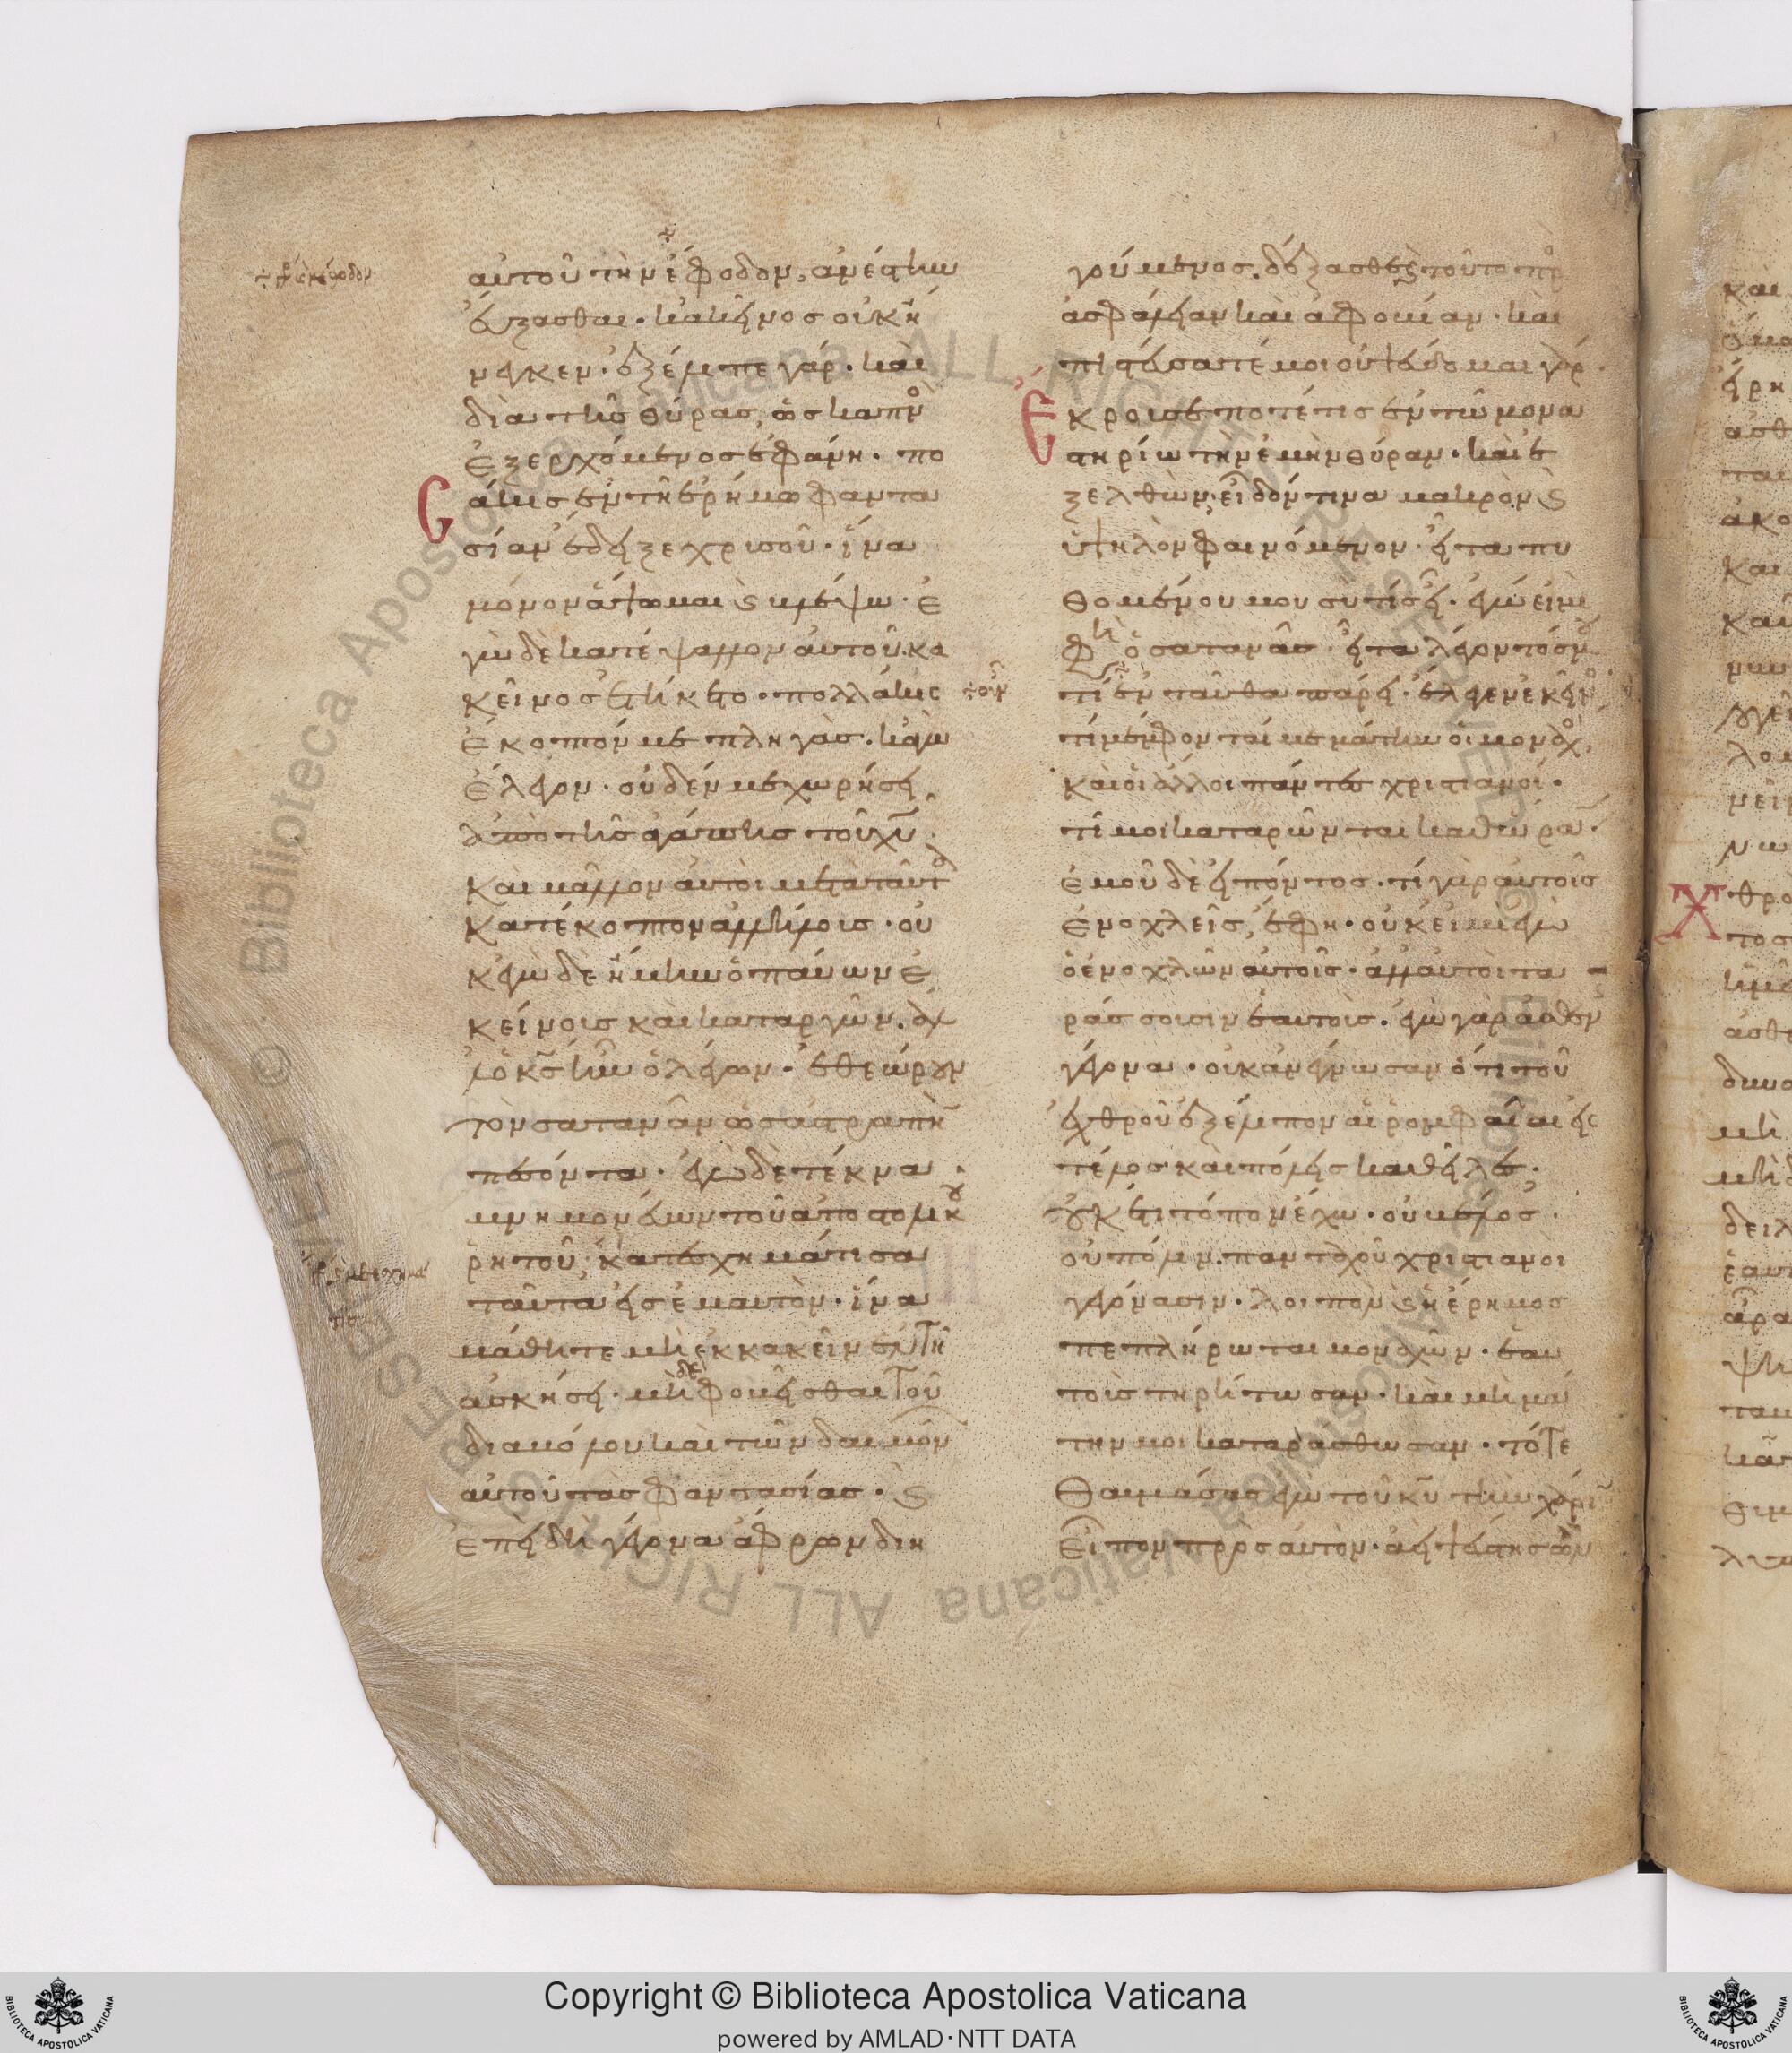 αὐτοῦ τὴν ἔφοδον, ἀνέστην
εὔξασθαι· κἀκεῖνος οὐκ ἤ
νεγκεν· ἐξέλιπε γάρ· καὶ
διὰ τῆς θύρας, ὡς καπν̊
ἐξερχόμενος ἐφάνη· πο
σάκις ἐν τῆ ἐρήμω φαντα
σίαν ἔδειξε χρυσοῦ· ἵνα
μόνον ἅψωμαι ϗ βλέψω· ἐ
γὼ δὲ κατέψαλλον αὐτοῦ· κα
κεῖνος ἐτήκετο· πολλάκις
ἔκοπτόν με πληγὰς· κἀγὼ
ἔλεγον· οὐδέν με χωρήσει
ἀπὸ τῆς ἀγάπης τοῦ χῦ·
καὶ μᾶλλον αὐτοὶ μετὰ ταῦτ
κατέκοπτον ἀλλήλοις· οὐ
κ ἐγὼ δὲ ἤμην ὁ παύων ἐ
κείνοις καὶ καταργῶν· ἀλ
λ' ὁ κς̄ ἦν ὁ λέγων· ἐθεώρουν
τὸν σατανᾶν ὡς ἀστραπὴν
πεσόντα· ἐγὼ δὲ τέκνα·
μνημονεύων τοῦ ἀποστολικοῦ
ῥητοῦ, κατεσχημάτισα
ταῦτα εἰς ἐμαυτὸν· ἵνα
μάθητε μὴ ἐκκακεῖν ἐν τῆ
ἀσκήσει· μὴ δὲ φοβεῖσθαι τοῦ
διαβόλου καὶ τῶν δαιμόν
αὐτοῦ τὰς φαντασίας· ϗ
ἐπειδὴ γέγονα ἄφρων διη
γούμενος· δέξασθε ϗ τοῦτο πρ
ἀσφάλειαν καὶ ἀφοβίαν· καὶ
πιστεύσατέ μοι οὐ ψεύδομαι γάρ·
ἔκρουσε ποτέ τις ἐν τῶ μονα
στηρίω τὴν ἐμὴν θύραν· καὶ ἐ
ξελθὼν, εἶδόν τινα μακρὸν ϗ
ὑψηλὸν φαινόμενον· εἶτα πυ
θομένου μου σὺ τίς εἶ· ἐγώ εἰμι
φη ὁ σατανᾶς· εἶτα λέγοντός μου
τί οὖν ἐνταῦθα πάρει· ἔλεγεν ἐκεῖν
τί μέμφονταί με μάτην οἱ μοναχ
καὶ οἱ ἄλλοι πάντες χριστιανοί·
τί μοι καταρῶνται καθ' ὥραν·
ἐμοῦ δὲ εἰπόντος· τί γὰρ αὐτοῖς
ἐνοχλεῖς, ἔφη· οὐκ εἰμι ἐγὼ
ὁ ἐνοχλῶν αὐτοῖς· ἀλλ' αὐτοὶ τα
ράσσουσιν ἑαυτοῖς· ἐγὼ γὰρ ἀσθεν
γέγονα· οὐκ ἀνέγνωσαν ὅτι τοῦ
ἐχθροῦ ἐξέλιπον αἱ ῥομφαῖαι εἰς
τέλος καὶ πόλεις καθεῖλες·
οὐκ ἔτι τόπον ἔχω· οὐ βέλος·
οὐ πόλιν. πανταχοῦ χριστιανοὶ
γεγόνασιν· λοιπὸν ϗ ἡ ἔρημος
πεπλήρωται μοναχῶν· ἑαυ
τοῖς τηρείτωσαν· καὶ μὴ μά
την μοι καταράσθωσαν· τότε
θαυμάσας ἐγὼ τοῦ κῦ τὴν χάριν
εἶπον πρὸς αὐτὸν· ἀεὶ ψεύστης ὢν